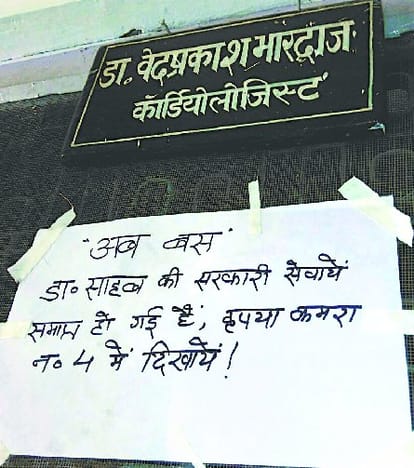 डा. वेदप्रकाश भारद्वाज
कॉर्डियोलोजिस्ट
"अब बस"
डा० साहब की सरकारी सेवायें
समाप्त हो गई हैं, कृपया कमरा
न० 4 में दिखायें!